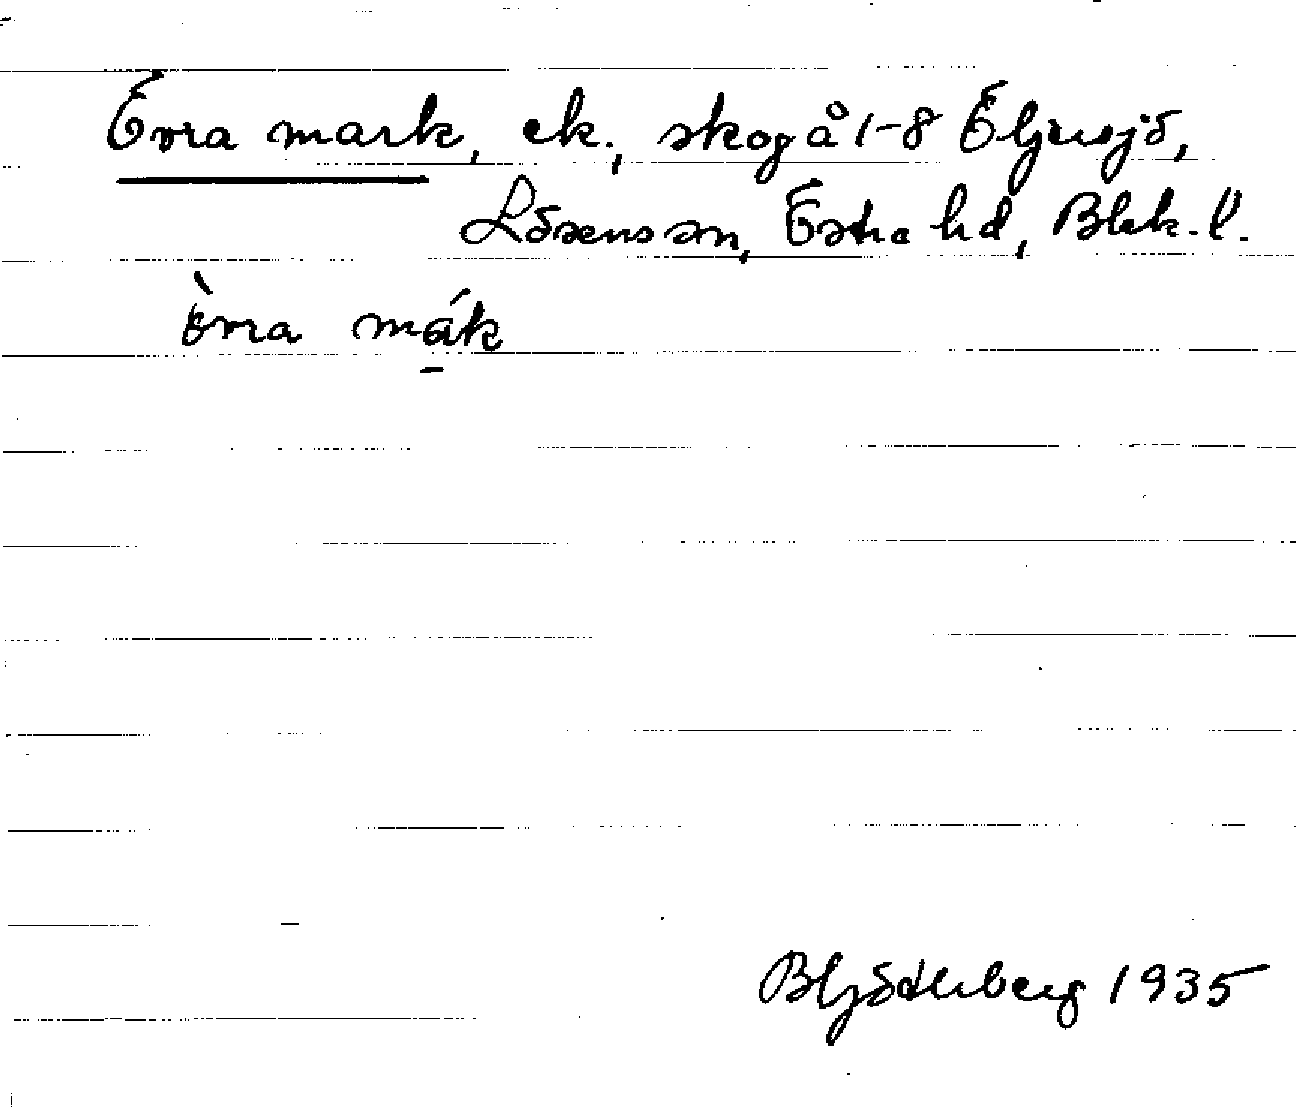 Övra mark, ek., skog å 1-8 Öljersjö,
Lösens sn, Östra hd, Blek. l.
òvra mák
BHjörtberg 1935